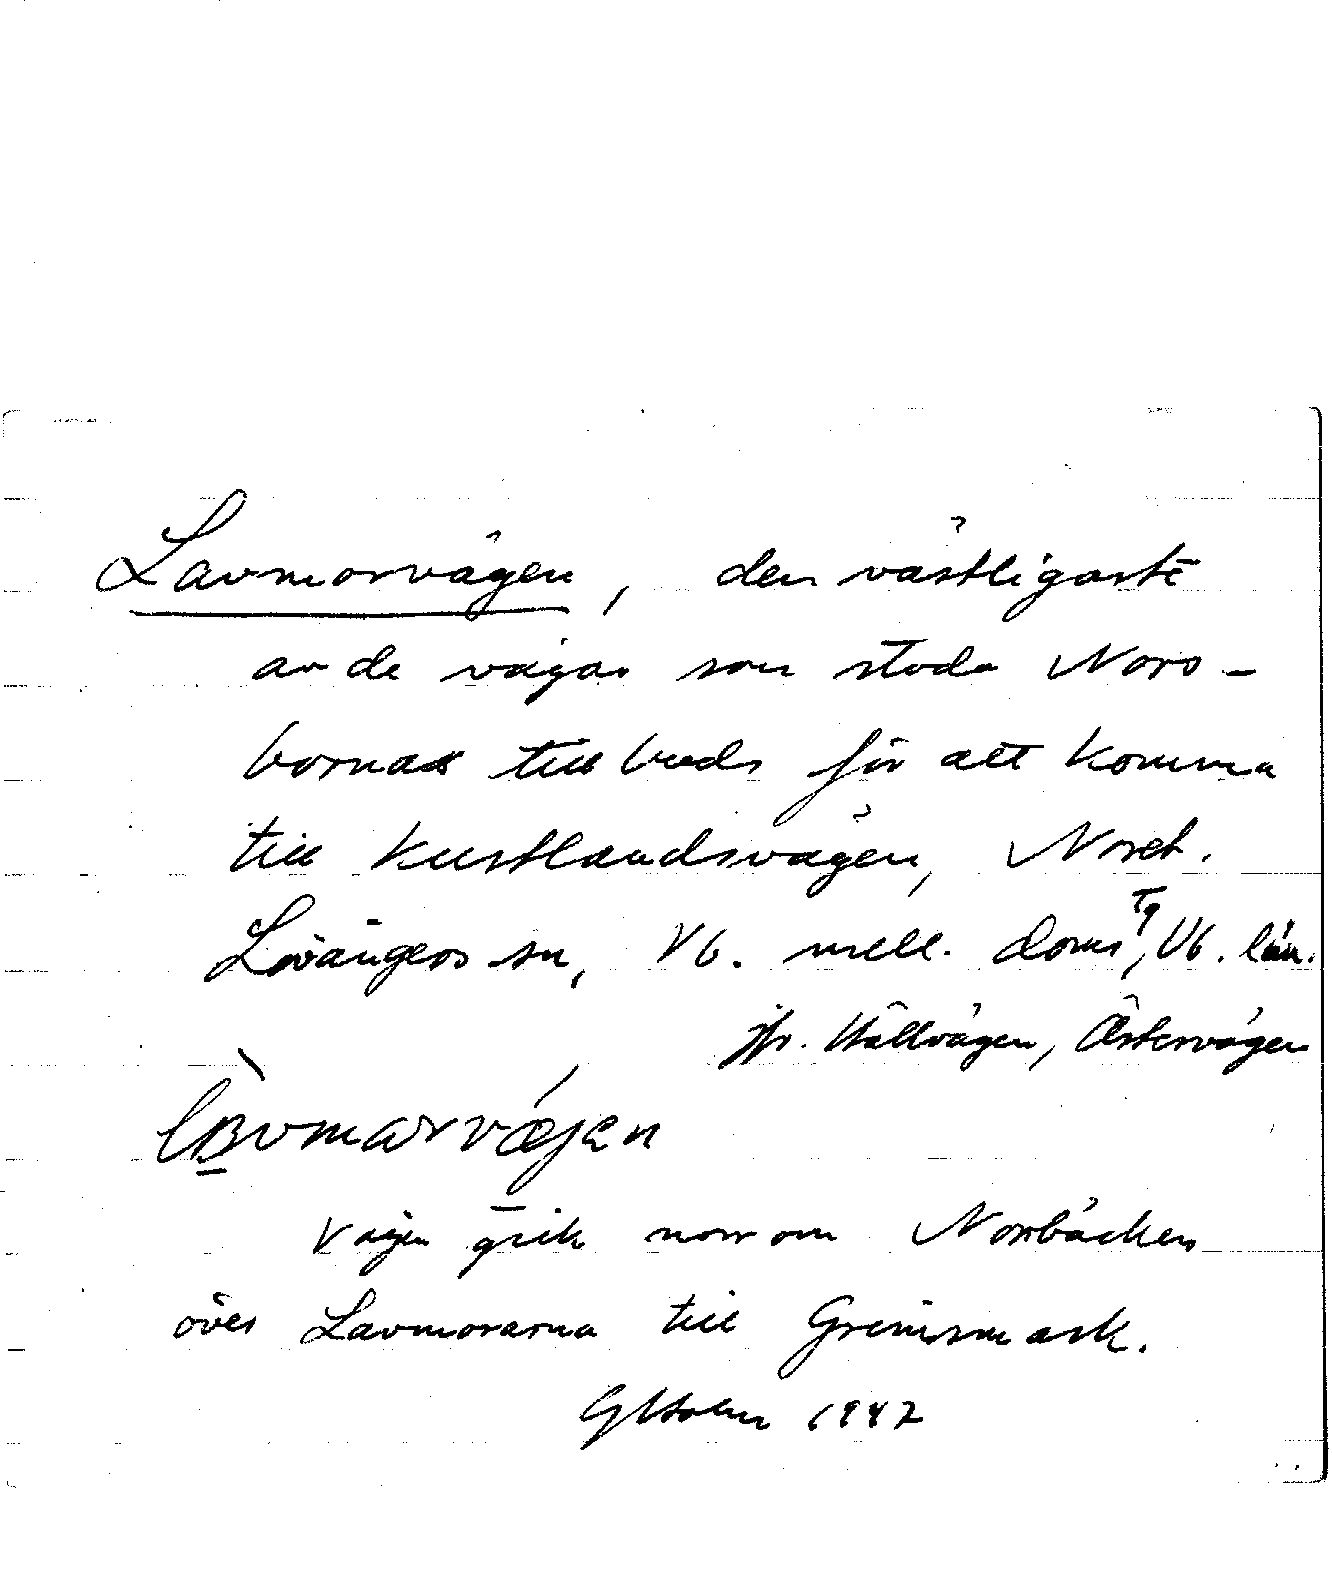 Lavmorvägen, den västligaste
av de vägar som stodo Noro-
bornas till buds för att komma
till kustlandsvägen, Noret.
Lövångers sn, Vb. mell. doms Tg, Vb. län.
jfr. Hällvägen, Östervägen
vägen gick norrom Norrbäcken
över Lavmorarna till Grimsmark.
G Holm 1947